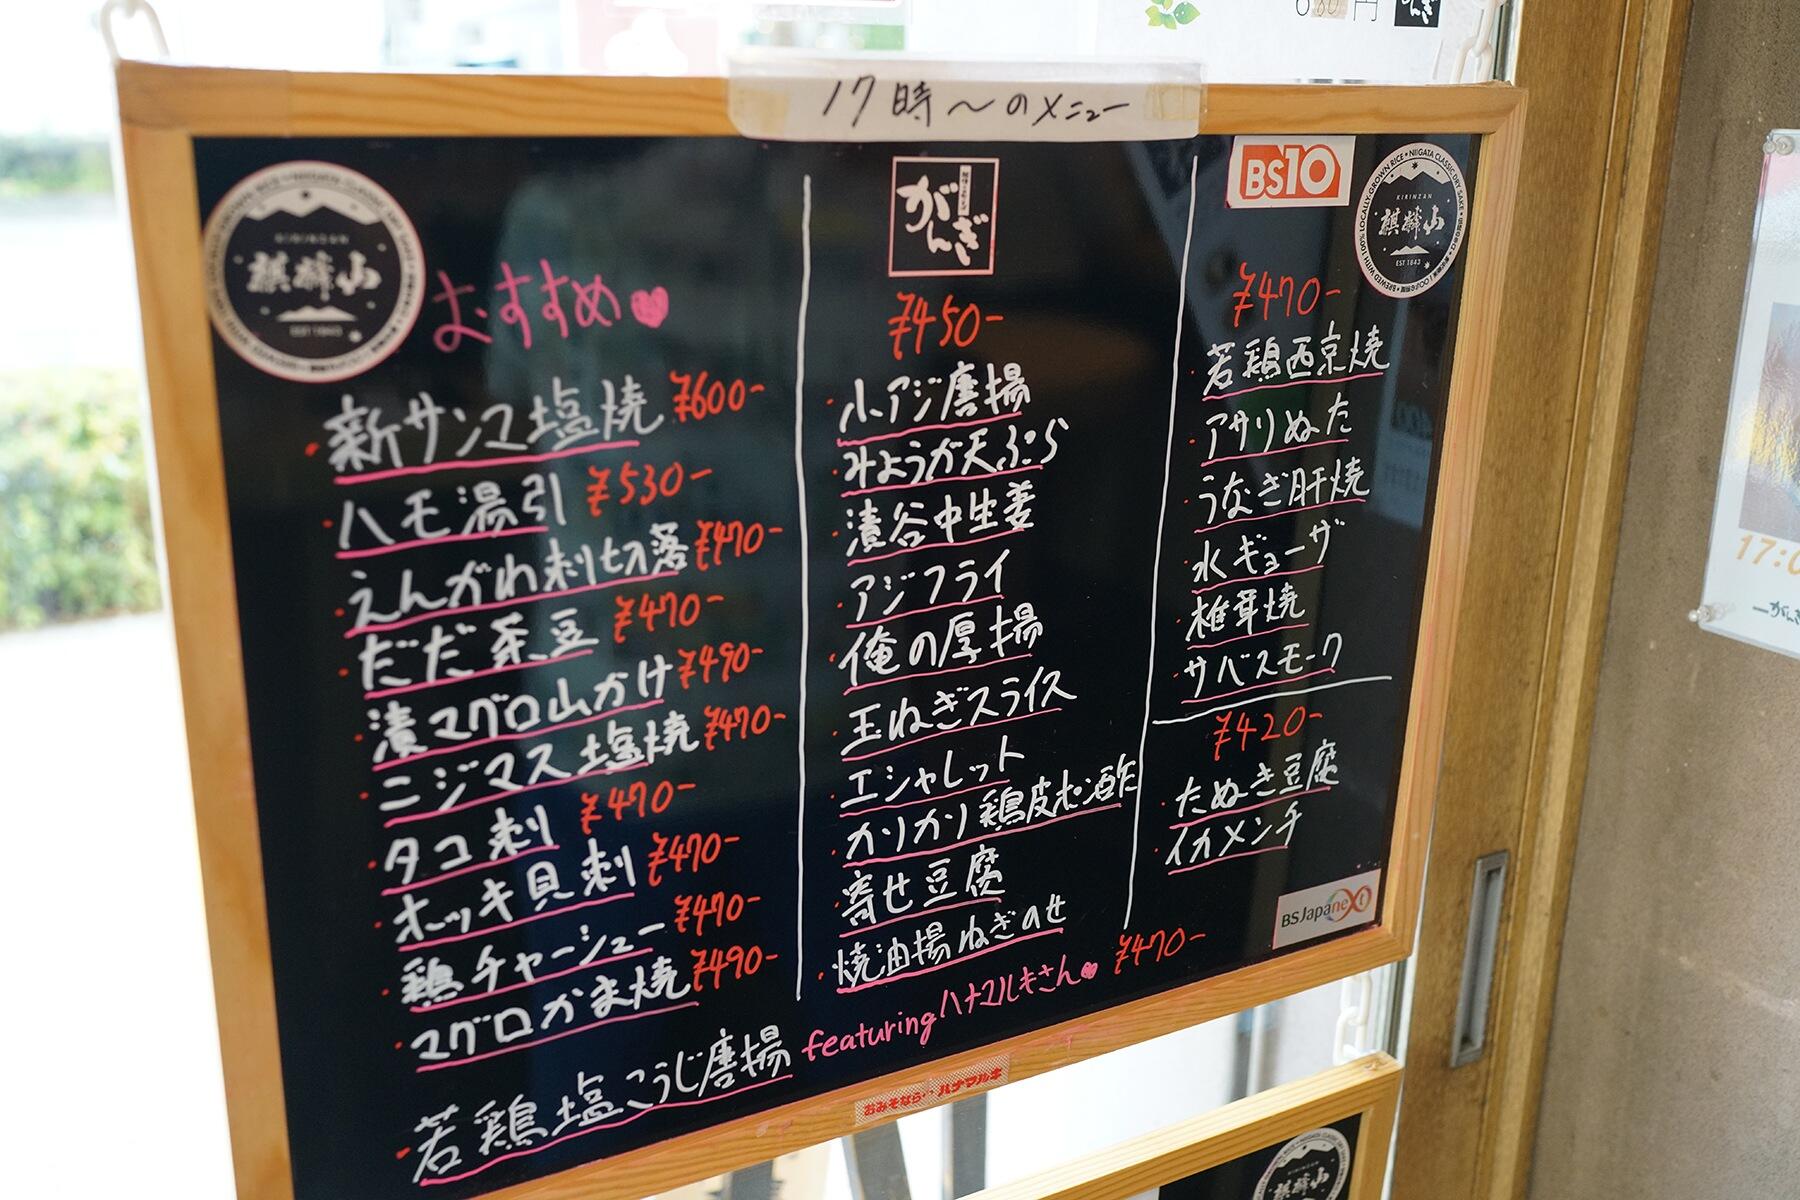 680円
がんぎ
17時～のメニュー
BREWED WITH 100% LOCALLY-GROWN RICE • NIIGATA CLASSIC DRY SAKE
KIRINZAN
麒麟山
EST 1843
おすすめ
・新サンマ塩焼 ¥600-
・ハモ湯引 ¥530-
・えんがわ刺切落 ¥470-
・だだ茶豆 ¥470-
・漬マグロ山かけ ¥490-
・ニジマス塩焼 ¥470-
・タコ刺 ¥470-
・ホッキ貝刺 ¥470-
・鶏チャーシュー ¥470-
・マグロかま焼 ¥490-
・若鶏塩こうじ唐揚 featuringハナマルキさん ¥470-
がんぎ
¥450-
・小アジ唐揚
・みょうが天ぷら
・漬谷中生姜
・アジフライ
・俺の厚揚
・玉ねぎスライス
・エシャレット
・カリカリ鶏皮ポン酢
・寄せ豆腐
・焼油揚ねぎのせ
BS10
KIRINZAN
麒麟山
EST 1843
¥470-
・若鶏西京焼
・アサリぬた
・うなぎ肝焼
・水ギョーザ
・椎茸焼
・サバスモーク
¥420-
・たぬき豆腐
・イカメンチ
BSJapanext
おみそなら‥ハナマルキ
17:0
がんぎ
麒麟山